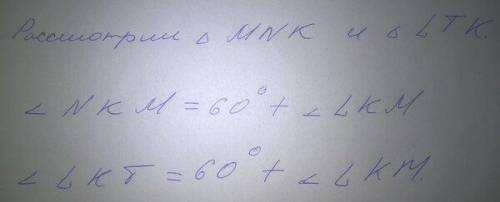 Рассмотрим △ MNK и △ LTK.
∠ NKM = 60° + ∠ LKM
∠ LKT = 60° + ∠ LKM.